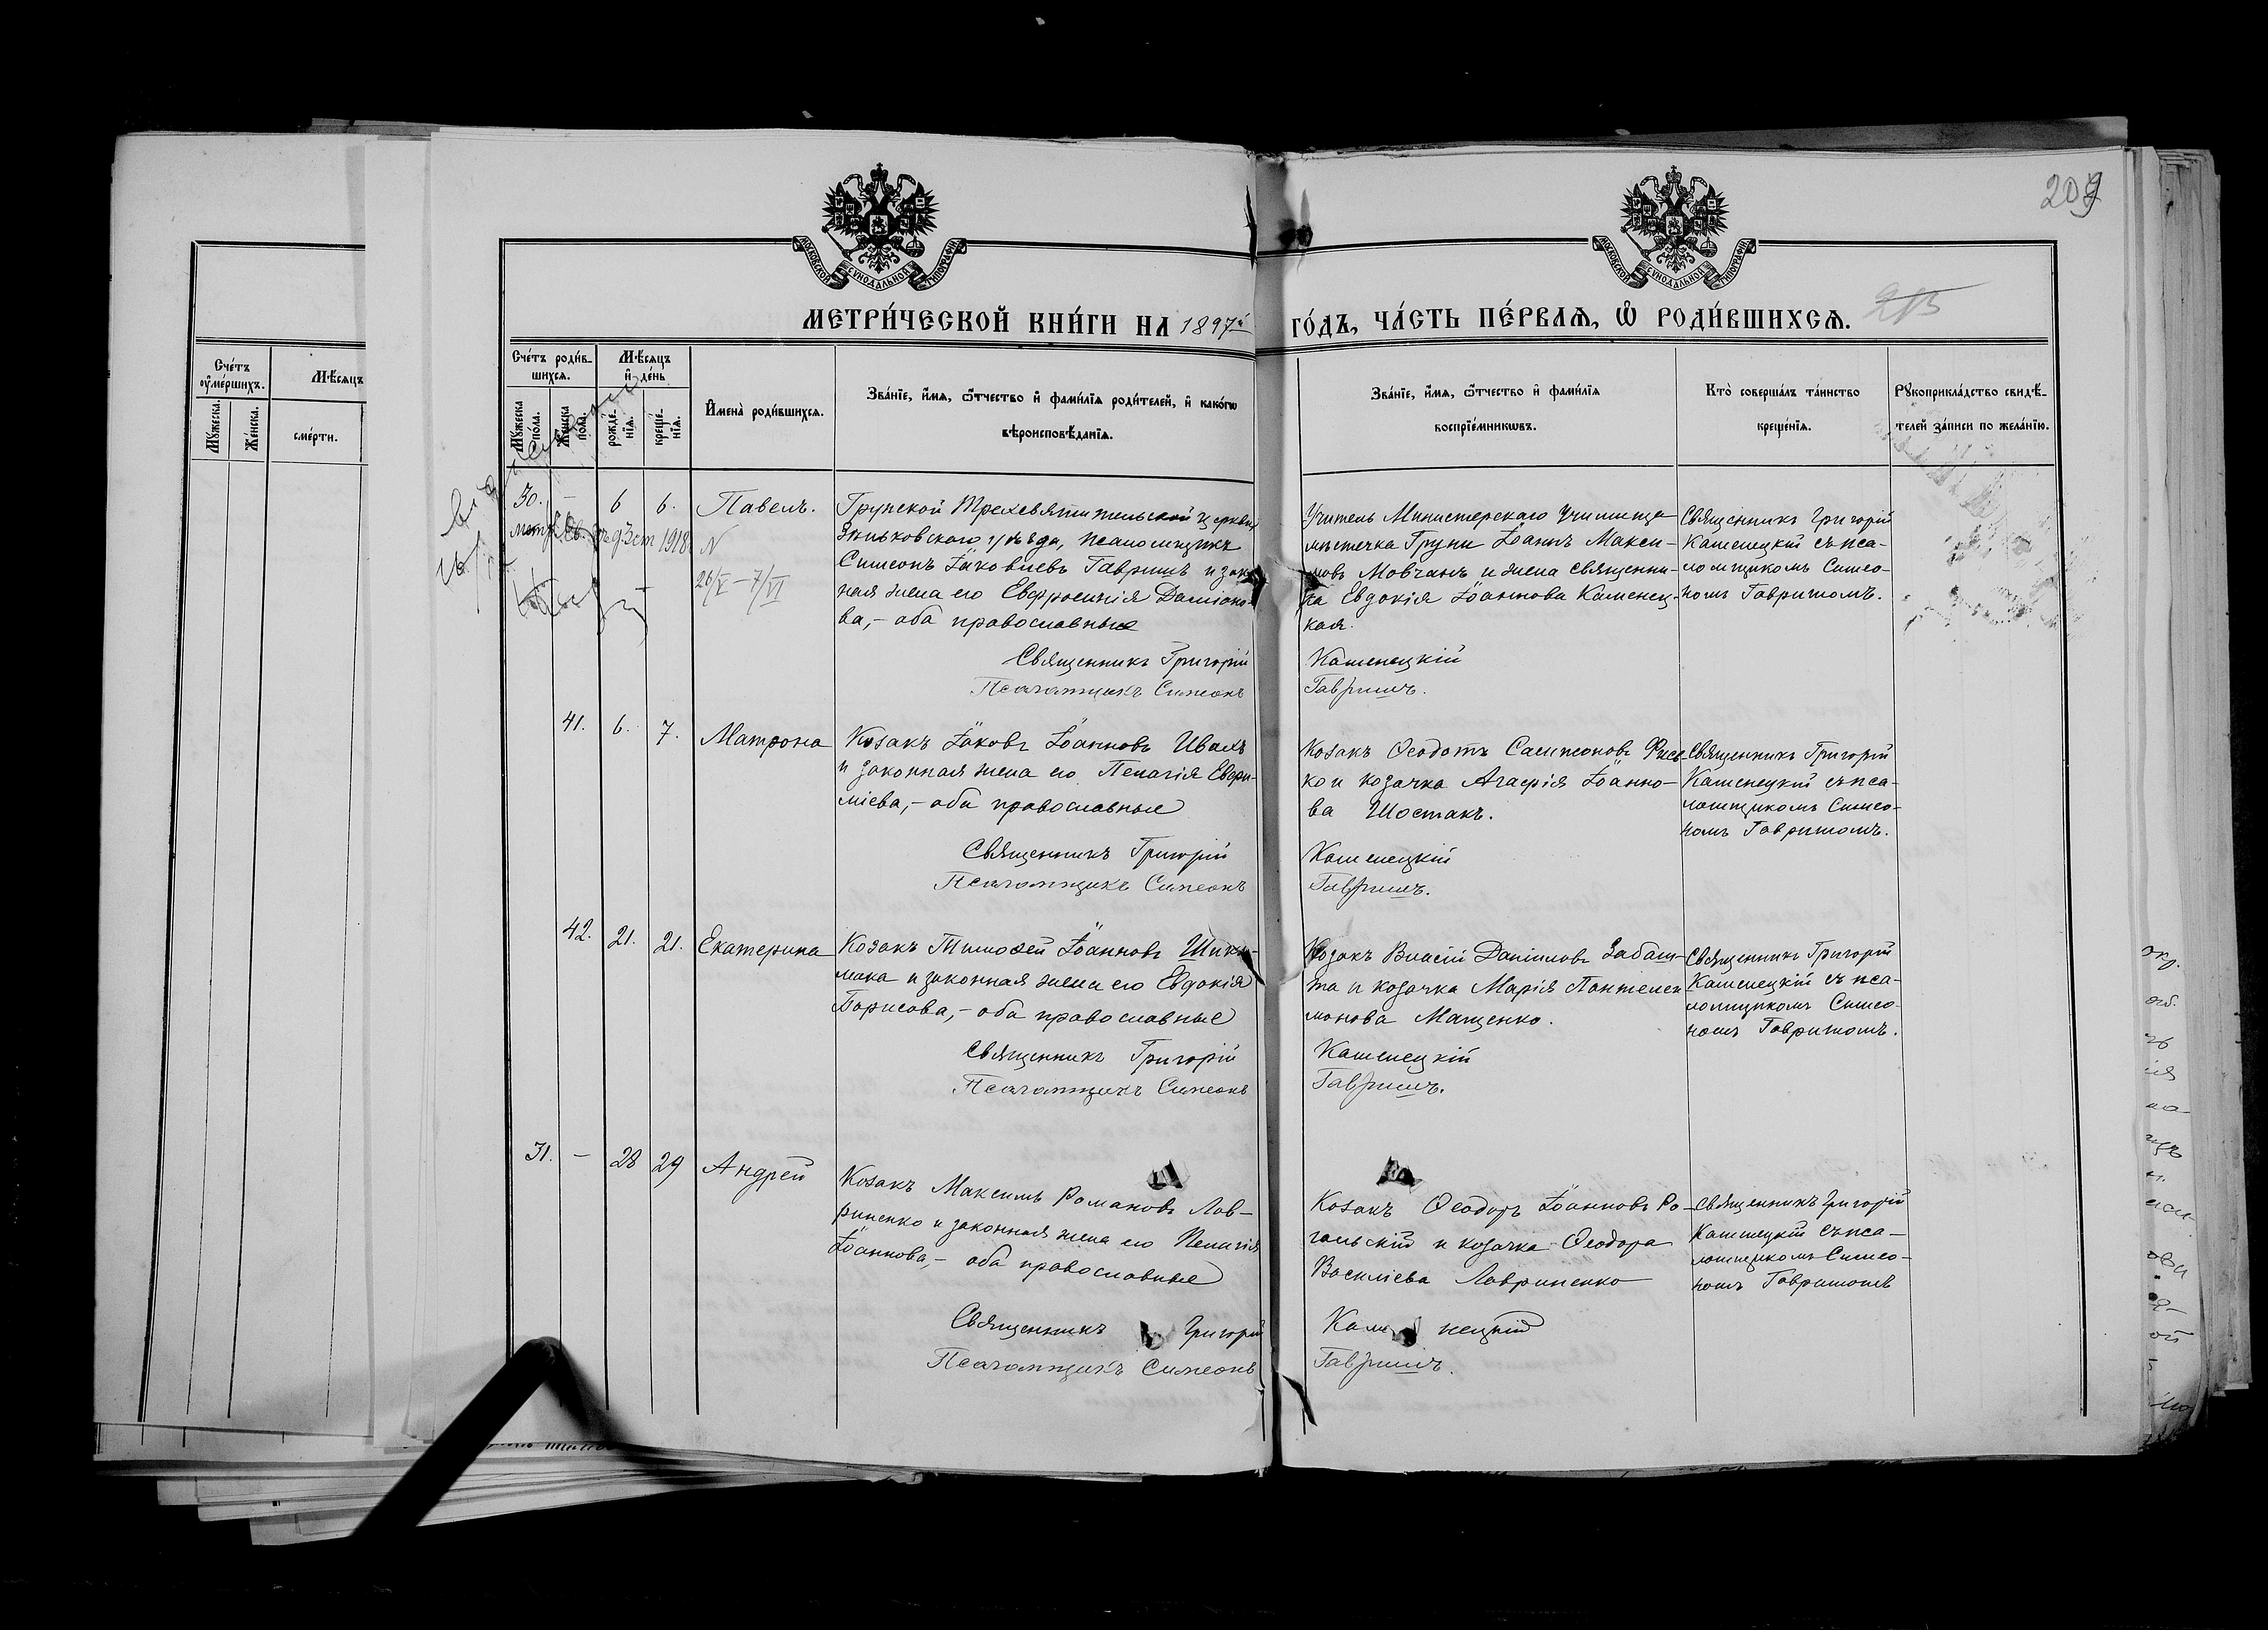 209
МОСКОВСКОЙ СѴНОДАЛЬНОЙ ТИПОГРАФІИ
МОСКОВСКОЙ СѴНОДАЛЬНОЙ ТИПОГРАФІИ
МЕТРИ́ЧЕСКОЙ КНИ́ГИ НА 1897й ГО́ДЪ, ЧА́СТЬ ПЕ́РВАѦ, Ѡ РОДИ́ВШИХСѦ.
Сче́тъ ᲂу҆ме́ршихъ.
Мѣ́сѧцъ
Мꙋ́жеска.
Же́нска.
сме́рти.
Сче́тъ роди́в-
шихсѧ.
Мѣ́сѧцъ
и҆ де́нь
Мꙋ́жеска по́ла.
Же́нска по́ла.
рожде́-
нїѧ.
креще́-
нїѧ.
И҆мена̀ роди́вшихсѧ.
Зва́нїе, и҆́мѧ, ѻ҆́тчество и҆ фами́лїѧ роди́телей, и҆ како́гѡ
вѣроисповѣ́данїѧ.
Зва́нїе, и҆́мѧ, ѻ҆́тчество и҆ фами́лїѧ
воспрїе́мникѡвъ.
Кто̀ соверша́лъ та́инство
креще́нїѧ.
Рꙋкоприкла́дство свидѣ́-
телей за́писи по жела́нїю.
30. - 6 6. Павелъ.
1918
N
26/V - 7/VI
Грунской Трехсвятительской церкви,
Зѣньковскаго уѣзда, псаломщикъ
Симеонъ Іаковлевъ Гавришъ и закон-
ная жена его Евфросинія Даміано-
ва,- оба православные
Священникъ Григорій
Псаломщикъ Симеонъ
Учитель Министерскаго Училища
мѣстечка Груни Іоаннъ Макси-
мовъ Мовчанъ и жена священни-
ка Евдокія Іоаннова Каменец-
кая.
Каменецкій
Гавришъ.
Священникъ Григорій
Каменецкій съ пса-
ломщикомъ Симео-
номъ Гавришомъ.
41. 6. 7. Матрона
Козакъ Іаковъ Іоанновъ Ивахъ
и законная жена его Пелагія Евфи-
міева,- оба православные
Священникъ Григорій
Псаломщикъ Симеонъ
Козакъ Ѳеодотъ
ко и козачка Агафія Іоанно-
ва Шостакъ.
Каменецкій
Гавришъ.
Священникъ Григорій
Каменецкій съ пса-
ломщикомъ Симео-
номъ Гавришомъ.
42. 21. 21. Екатерина
Козакъ Тимоѳей Іоанновъ
мака и законная жена его Евдокія
Борисова,- оба православные
Священникъ Григорій
Псаломщикъ Симеонъ
Козакъ Власій Даніиловъ Забаш-
та и козачка Марія Пантелеи
монова Мащенко.
Каменецкій
Гавришъ.
Священникъ Григорій
Каменецкій съ пса-
ломщикомъ Симео-
номъ Гавришомъ.
31. - 28 29 Андрей
Козакъ Максимъ Романовъ Лав-
риненко и законная жена его Пелагія
Іоаннова,- оба православные
Священникъ Григорій
Псаломщикъ Симеонъ
Козакъ Ѳеодоръ Іоанновъ Ро-
гальскій и козачка Ѳеодора
Василіева Лавриненко
Каменецкій
Гавришъ.
Священникъ Григорій
Каменецкій съ пса-
ломщикомъ Симео-
номъ Гавришомъ